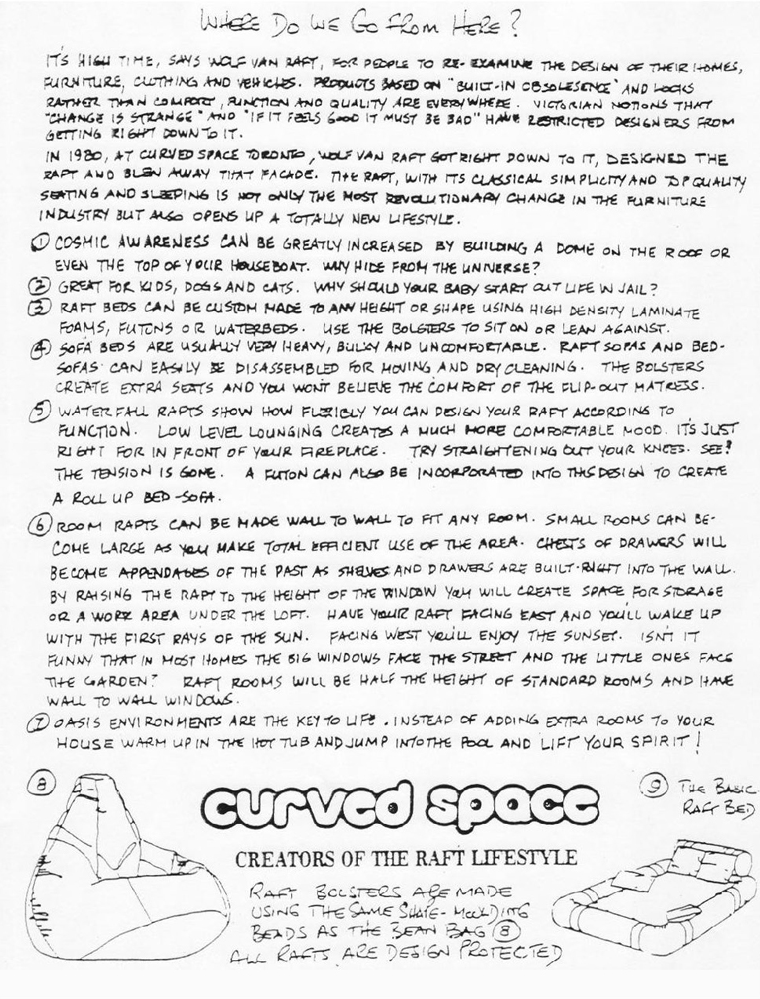 WHERE DO WE GO FROM HERE?
IT'S HIGH TIME, SAYS WOLF VAN RAFT, FOR PEOPLE TO RE-EXAMINE THE DESIGN OF THEIR HOMES,
FURNITURE, CLOTHING AND VEHICLES. PRODUCTS BASED ON "BUILT-IN OBSOLESENCE" AND LOOKS
RATHER THAN COMFORT, FUNCTION AND QUALITY ARE EVERYWHERE. VICTORIAN NOTIONS THAT
"CHANGE IS STRANGE" AND "IF IT FEELS GOOD IT MUST BE BAD" HAVE RESTRICTED DESIGNERS FROM
GETTING RIGHT DOWN TO IT.
IN 1980, AT CURVED SPACE TORONTO, WOLF VAN RAFT GOT RIGHT DOWN TO IT, DESIGNED THE
RAFT AND BLEW AWAY THAT FACADE. THE RAFT, WITH ITS CLASSICAL SIMPLICITY AND TOP QUALITY
SEATING AND SLEEPING IS NOT ONLY THE MOST REVOLUTIONARY CHANGE IN THE FURNITURE
INDUSTRY BUT ALSO OPENS UP A TOTALLY NEW LIFESTYLE.
① COSMIC AWARENESS CAN BE GREATLY INCREASED BY BUILDING A DOME ON THE ROOF OR
EVEN THE TOP OF YOUR HOUSEBOAT. WHY HIDE FROM THE UNIVERSE?
② GREAT FOR KIDS, DOGS AND CATS. WHY SHOULD YOUR BABY START OUT LIFE IN JAIL?
③ RAFT BEDS CAN BE CUSTOM MADE TO ANY HEIGHT OR SHAPE USING HIGH DENSITY LAMINATE
FOAMS, FUTONS OR WATERBEDS. USE THE BOLSTERS TO SIT ON OR LEAN AGAINST.
④ SOFA BEDS ARE USUALLY VERY HEAVY, BULKY AND UNCOMFORTABLE. RAFT SOFAS AND BED-
SOFAS CAN EASILY BE DISASSEMBLED FOR MOVING AND DRY CLEANING. THE BOLSTERS
CREATE EXTRA SEATS AND YOU WON'T BELIEVE THE COMFORT OF THE FLIP-OUT MATRESS.
⑤ WATERFALL RAFTS SHOW HOW FLEXIBLY YOU CAN DESIGN YOUR RAFT ACCORDING TO
FUNCTION. LOW LEVEL LOUNGING CREATES A MUCH MORE COMFORTABLE MOOD. IT'S JUST
RIGHT FOR IN FRONT OF YOUR FIREPLACE. TRY STRAIGHTENING OUT YOUR KNEES. SEE?
THE TENSION IS GONE. A FUTON CAN ALSO BE INCORPORATED INTO THIS DESIGN TO CREATE
A ROLL UP BED-SOFA.
⑥ ROOM RAFTS CAN BE MADE WALL TO WALL TO FIT ANY ROOM. SMALL ROOMS CAN BE-
COME LARGE AS YOU MAKE TOTAL EFFICIENT USE OF THE AREA. CHESTS OF DRAWERS WILL
BECOME APPENDAGES OF THE PAST AS SHELVES AND DRAWERS ARE BUILT-RIGHT INTO THE WALL.
BY RAISING THE RAFT TO THE HEIGHT OF THE WINDOW YOU WILL CREATE SPACE FOR STORAGE
OR A WORK AREA UNDER THE LOFT. HAVE YOUR RAFT FACING EAST AND YOU'LL WAKE UP
WITH THE FIRST RAYS OF THE SUN. FACING WEST YOU'LL ENJOY THE SUNSET. ISN'T IT
FUNNY THAT IN MOST HOMES THE BIG WINDOWS FACE THE STREET AND THE LITTLE ONES FACE
THE GARDEN? RAFT ROOMS WILL BE HALF THE HEIGHT OF STANDARD ROOMS AND HAVE
WALL TO WALL WINDOWS.
⑦ OASIS ENVIRONMENTS ARE THE KEY TO LIFE. INSTEAD OF ADDING EXTRA ROOMS TO YOUR
HOUSE WARM UP IN THE HOT TUB AND JUMP INTO THE POOL AND LIFT YOUR SPIRIT!
⑧
curved space
⑨ THE BASIC
RAFT BED
CREATORS OF THE RAFT LIFESTYLE
RAFT BOLSTERS ARE MADE
USING THE SAME SHAPE-MOULDING
BEADS AS THE BEAN BAG ⑧
ALL RAFTS ARE DESIGN PROTECTED